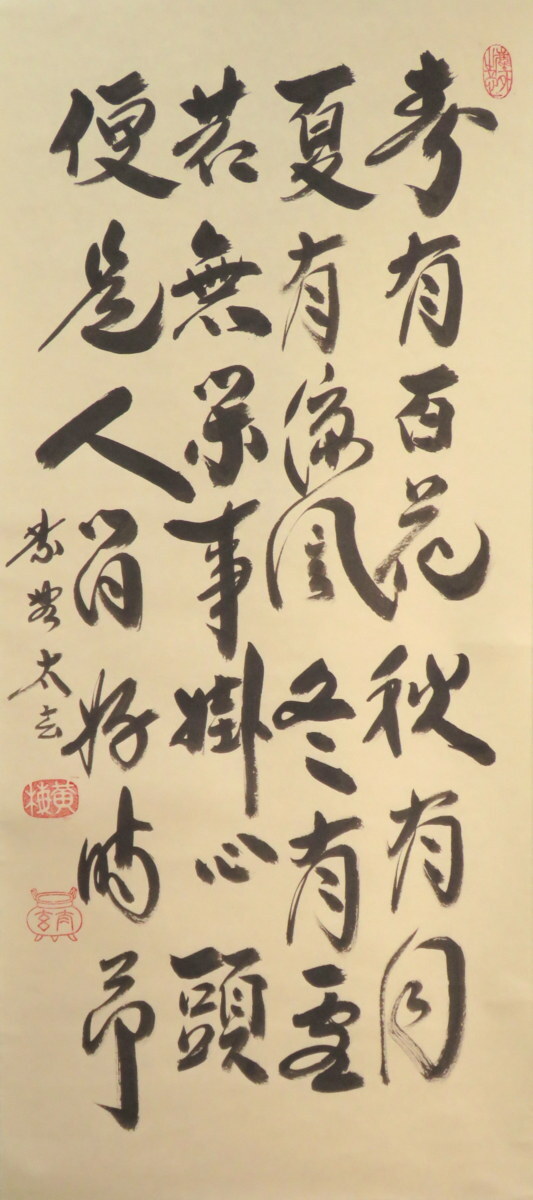 春有百花秋有月
夏有涼風冬有雪
若無閑事掛心頭
便是人間好時節
紫野太玄
黄梅
太玄